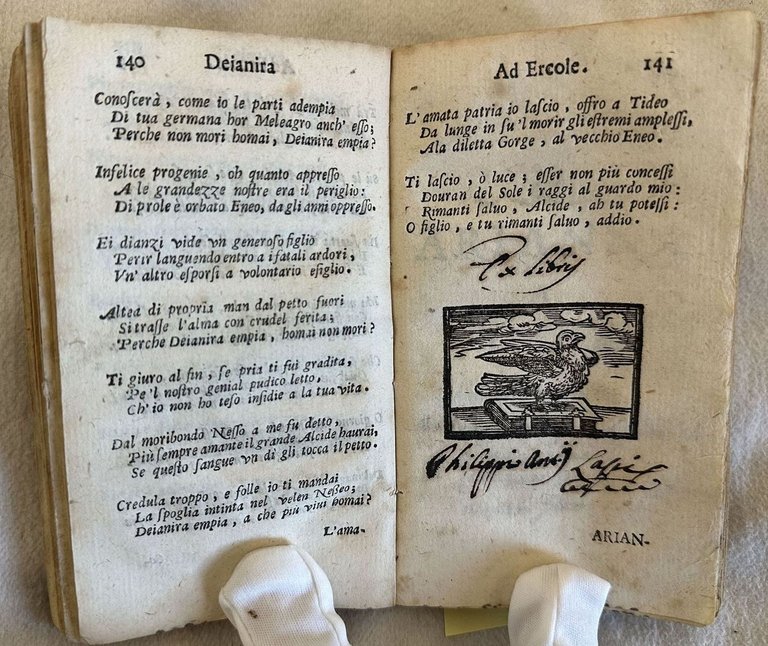 140 Deianira
Conoſcerà, come io le parti adempia
Di tua germana hor Meleagro anch' eſſo;
Perche non mori homai, Deianira empia?
Infelice progenie, oh quanto appreſſo
A le grandezze noſtre era il periglio:
Di prole è orbato Eneo, da gli anni oppreſſo.
Ei dianzi vide vn generoſo figlio
Perir languendo entro a i fatali ardori,
Vn' altro eſporſi a volontario eſiglio.
Altea di propria man dal petto fuori
Si traſſe l'alma con crudel ferita;
Perche Deianira empia, homai non mori?
Ti giuro al fin, ſe pria ti fui gradita,
Pe 'l noſtro genial pudico letto,
Ch' io non ho teſo inſidie a la tua vita.
Dal moribondo Neſſo a me fu detto,
Più ſempre amante il grande Alcide haurai,
Se queſto ſangue vn dì gli tocca il petto.
Credula troppo, e folle io ti mandai
La ſpoglia intinta nel velen Neſſeo;
Deianira empia, a che più viui homai?
L'ama-
Ad Ercole. 141
L'amata patria io laſcio, offro a Tideo
Da lunge in ſu 'l morir gli eſtremi ampleſſi,
A la diletta Gorge, al vecchio Eneo.
Ti laſcio, ò luce; eſſer non più conceſſi
Douran del Sole i raggi al guardo mio:
Rimanti ſaluo, Alcide, ah tu poteſſi:
O figlio, e tu rimanti ſaluo, addio.
Ex Libris
Philippi Antij
ARIAN-